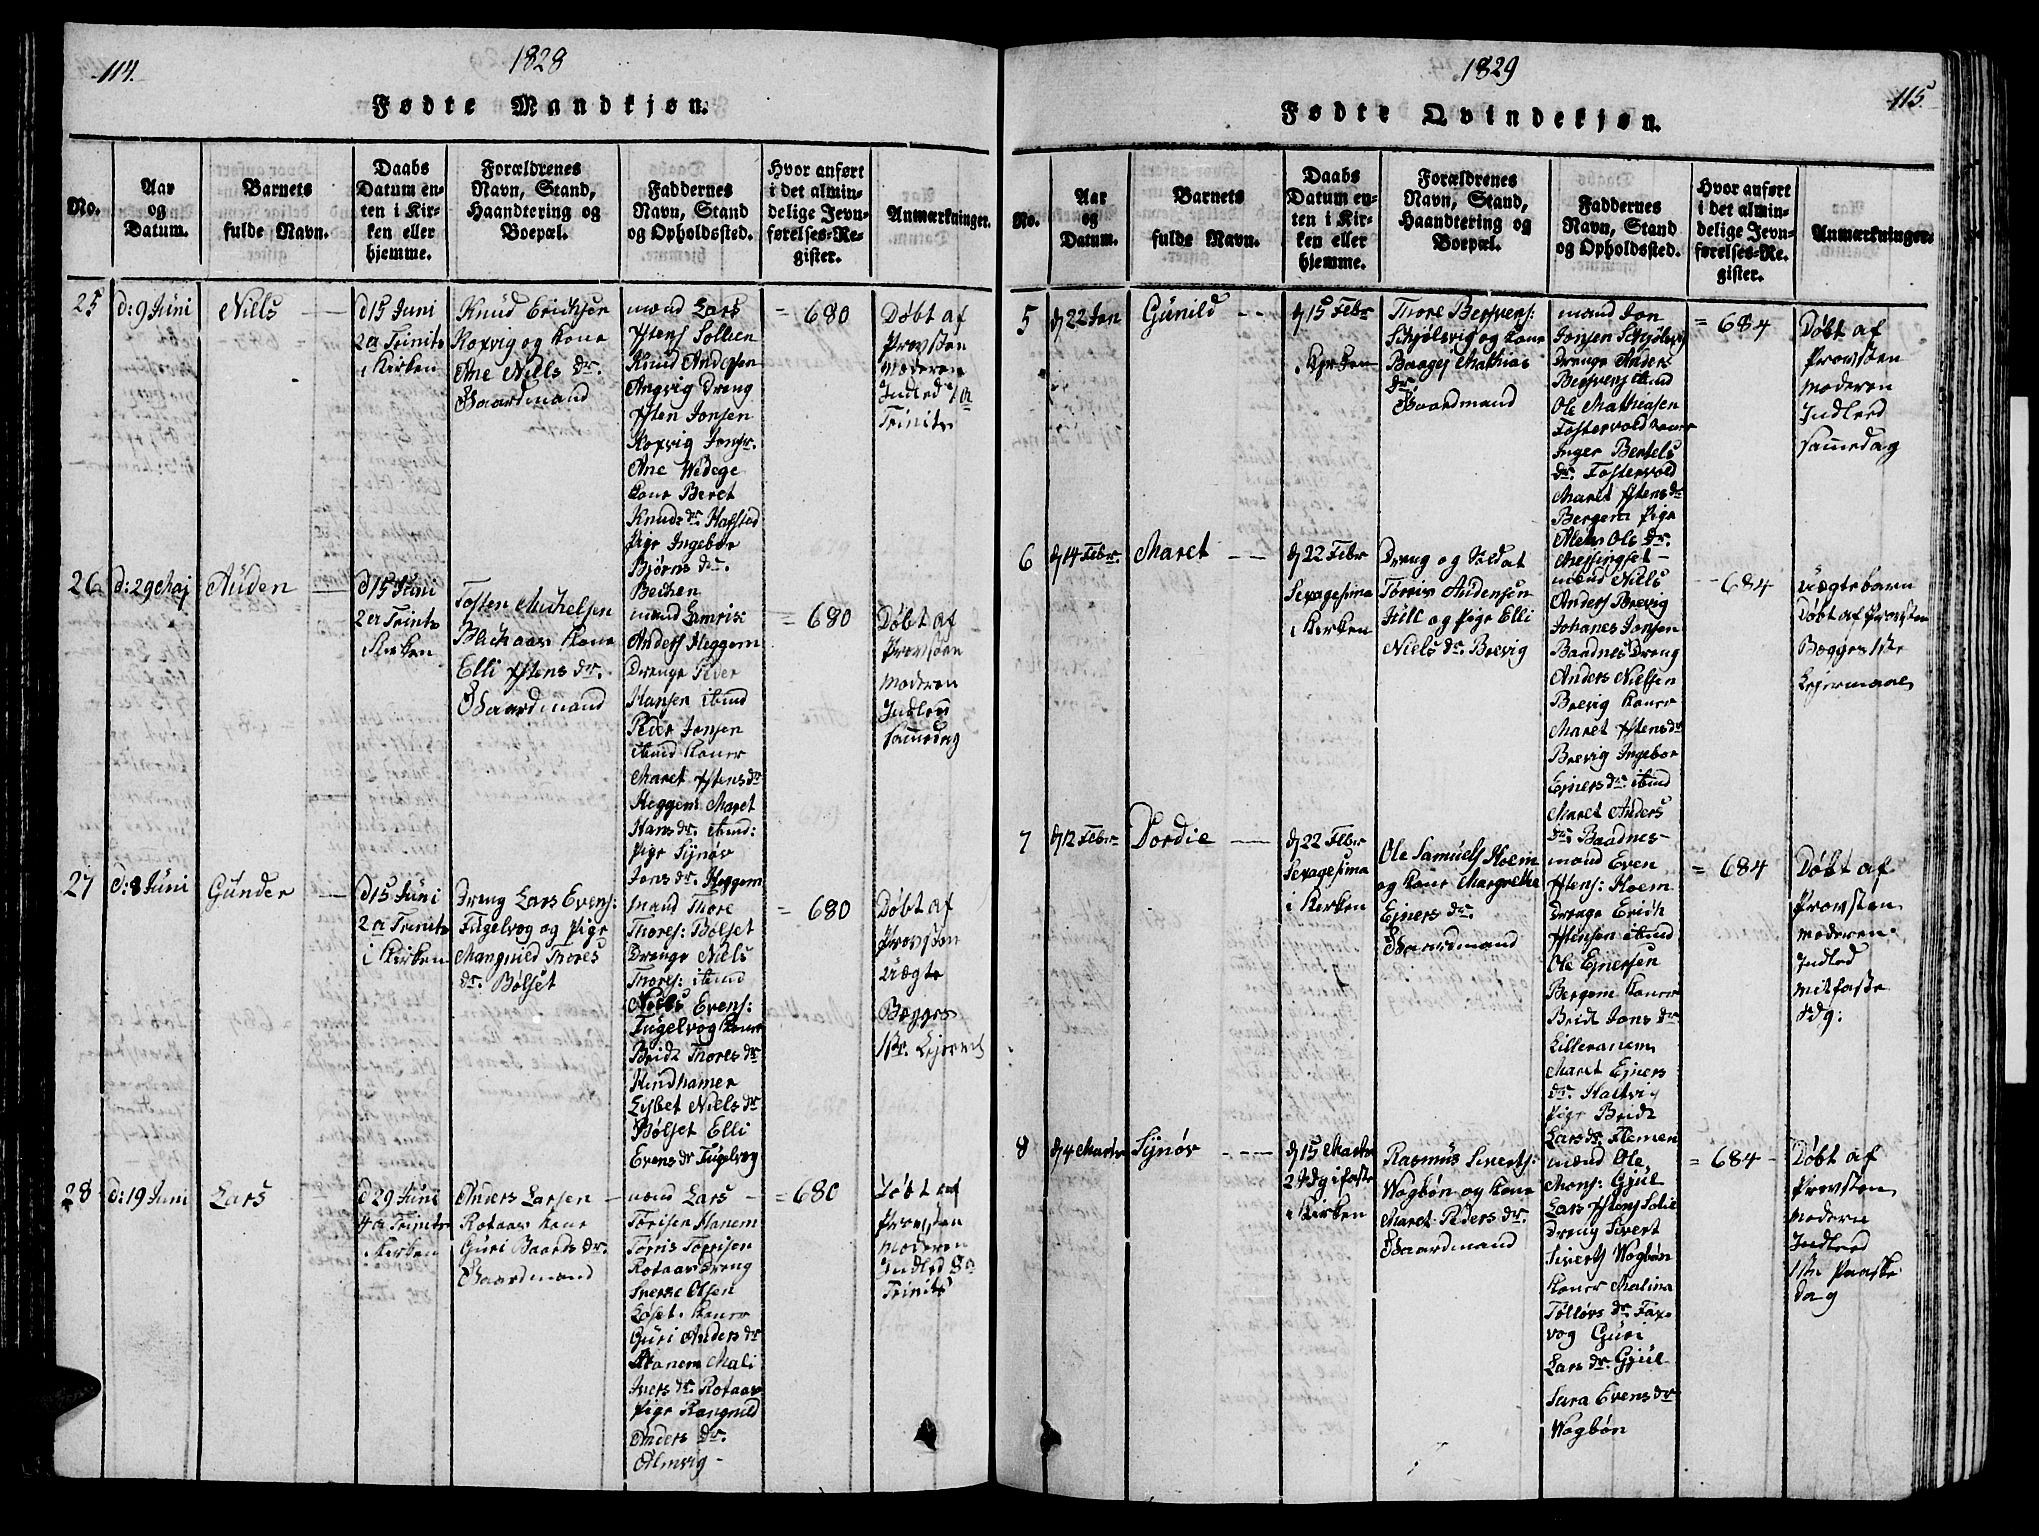 114.
1828
Fødte Mandkjøn.
No.
Aar
og
Datum.
Barnets
fulde Navn.
Daabs
Datum en-
ten i Kir-
ken eller
hjemme.
Forældrenes
Navn, Stand,
Haandtering og
Boepæl.
Faddernes
Navn, Stand
og Opholdssted.
Hvor anført
i det almin-
delige Jevn-
førelses-Re-
gister.
Anmærkninger.
25
d: 9 Juni
Nills
d 15 Juni
2a Trinits
i Kirken
Knud Erichsen
Roxvig og Kone
Ane Niels dr.
Gaardmand
mænd Lars
Knud Andersen
Angvig Dreng
Roxvig
Ane Wedege
Kone Beret
Knuds dr. Hafsted
Pige Ingebor
Bjørns dr.
= 680
Døbt af
Provsten
Moderen
Trinits
26
d: 29 Maj
Auden
d 15 Juni
2a Trinits
Kirken
Tosten Michelsen
Kone
Elli Ystens dr.
Gaardmand
Anders Heggem
Drenge
Hansen ibmd
Peder Jonsen
ibmd Koner
Maret Ystens dr
Heggem Maret
Hans dr. ibmd:
Pige Synøv
Jons dr. Heggem
= 680
Døbt af
Provsten
Moderen
Indled
Samedag
27
d: 8 Juni
Gunder
d 15 Juni
2a Trinits
i Kirken
Dreng Lars Evens:
Fugelvog og Pige
Mangnild Thores
dr. Bølset
mand Thore
Thores: Bølset
Drenge Niels
Thores: ibmd
Niels Evens:
Fugelvog Koner
Bridt Thores dr
Kindhamer
Lisbet Niels dr
Bølset Elli
Evens dr Fugelvog
= 680
Døbt af
Provsten
Uægte
Begges
28
d: 19 Juni
Lars
d 29 Juni
4a Trinits
i Kirken
Anders Larsen
Rotaas Kone
Guri Baards dr.
Gaardmand
mænd Lars
Torisen Hanem
Torris Torrisen
Rotaas Dreng
Sverke Olsen
Løset. Koner
Guri Anders dr
Hanem Mali
Ivers dr. Rotaas
Pige Rangnild
Anders dr.
Almvig
= 680
Døbt af
Provsten
Moderen
Indled 8a
Trinits
1829
115.
Fødte Qvindekjøn.
No.
Aar
og
Datum.
Barnets
fulde Navn.
Daabs
Datum en-
ten i Kir-
ken eller
hjemme.
Forældrenes
Navn, Stand,
Haandtering og
Boepæl.
Faddernes
Navn, Stand
og Opholdssted.
Hvor anført
i det almin-
delige Jevn-
førelses-Re-
gister.
Anmærkninger.
5
d 22 Jan
Gunild
d 15 Febr
i Kirken
Thore
og Kone
Mathias
dr.
Gaardmand
mand Jon
Jonsen
Drenge Anders
Ole Mathiesen
Fostervold Koner
Inger Bertels
dr. Fostervold
Maret Ystens dr
Bergem Pige
Ole dr.
= 684
Døbt af
Provsten
Moderen
Indled
Samedag
6
d 14 Febr.
Maret
d 22 Febr
Sexagesima
i Kirken
Dreng og Soldat
Torris Andensen
og Pige Elli
Niels dr. Brevig
mænd Niels
Anders Brevig
Johanes Jonsen
Baadnes Dreng
Anders Nielsen
Brevig Koner
Maret Ystens dr
Brevig Ingebor
Ejners dr. ibmd
Maret Anders
dr. Baadnes
684
Uægtebarn
Døbt af Provsten
Begges 1ste
Lejermaal
7
d 12 Febr
Dordie
d 22 Febr
Sexagesima
i Kirken
Ole Samuels Hoem
og Kone Margrethe
Ejners dr.
Gaardmand
mand Even
Ystens: Hoem
Drenge Erich
Ystensen ibmd
Ole Ejnersen
Bergem Koner
Bridt Jons dr.
Lilleranem
Maret Ejners
dr.
Pige Bridt
Lars dr. Flemen
= 684
Døbt af
Provsten
Moderen
Indled
Mitfaste
Sdg:
8
d 4 Marts
Synøv
d 15 Marts
2 Sdg i faste
i Kirken
Rasmus Siverts:
Wogbøn og Kone
Maret Peders dr.
Gaardmand
mænd Ole
Mons: Gjul
Lars Ystens
Dreng Sivert
Siverts Wogbøn
Koner Malina
Tollevs dr. Fax-
vog Guri
Lars dr. Gjul
Sara Evens dr
Wogbøn
= 684
Døbt af
Provsten
Modern
Indled
1ste Paaske
dag